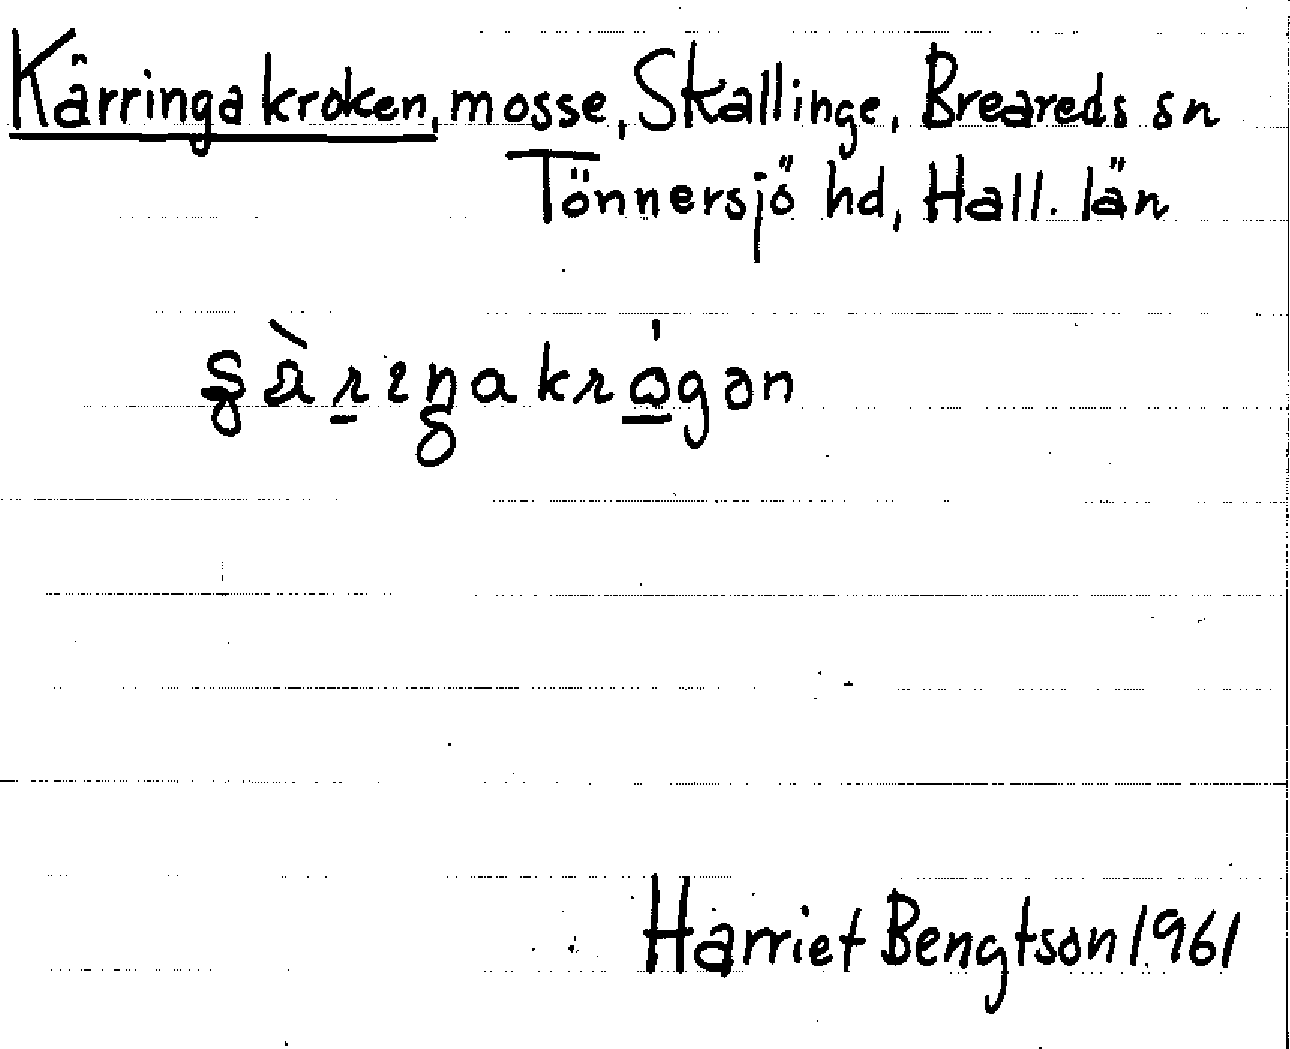 Kärringakroken, mosse, Skallinge, Breareds sn
Tönnersjö hd, Hall. län
Harriet Bengtson 1961